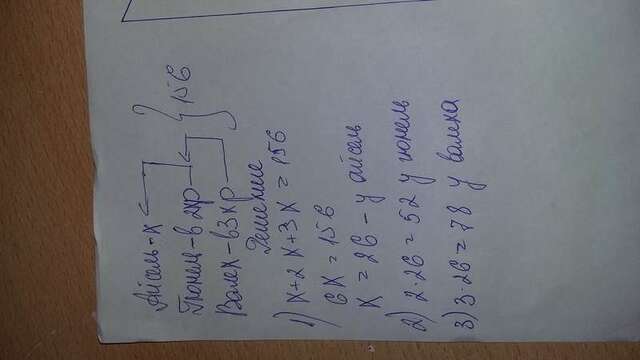 Айсель - х
Гюнель - в 2хр
Валех - в 3хр } 156
Решение
1) х + 2х + 3х = 156
6х = 156
х = 26 - у айсель
2) 2 · 26 = 52 у гюнель
3) 3 · 26 = 78 у валеха